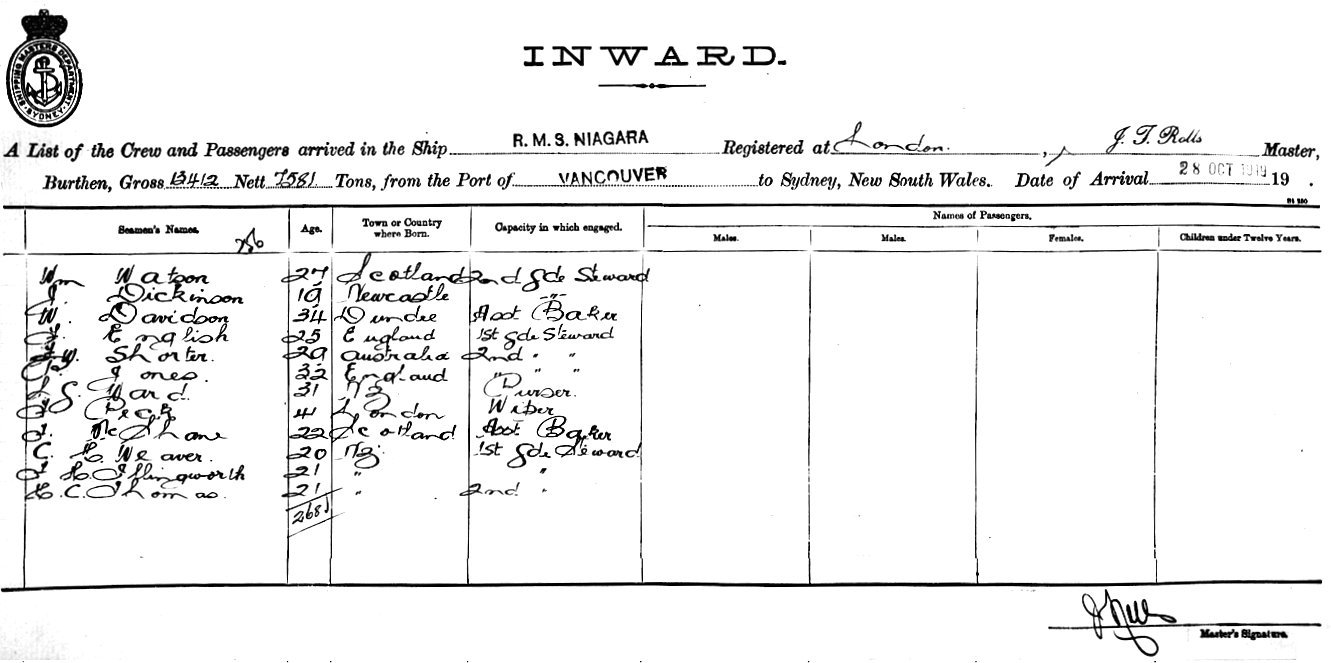 SHIPPING MASTERS DEPARTMENT
SYDNEY
INWARD.
A List of the Crew and Passengers arrived in the Ship R. M. S. NIAGARA Registered at London. , J. T. Rolls Master,
Burthen, Gross 13412 Nett 7581 Tons, from the Port of VANCOUVER to Sydney, New South Wales. Date of Arrival 28 OCT 1919 19 .
Names of Passengers.
Seamen's Names. Age. Town or Country where Born. Capacity in which engaged. Males. Males. Females. Children under Twelve Years.
Wm Watson 27 Scotland 2nd Gde Steward
Dickinson 19 Newcastle -"-
W. Davidson 34 Dundee Asst Baker
English 25 England 1st Gde Steward
Shorter. 29 Australia 2nd " "
Jones. 32 England " " "
Ward. 31 NZ Purser.
Peck 41 London Wiper
McShane 22 Scotland Asst Baker
C. H. Weaver. 20 NZ. 1st Gde Steward
H. Illingworth 21 " "
H. C. Thomas. 21 " 2nd "
2681
Master's Signature.